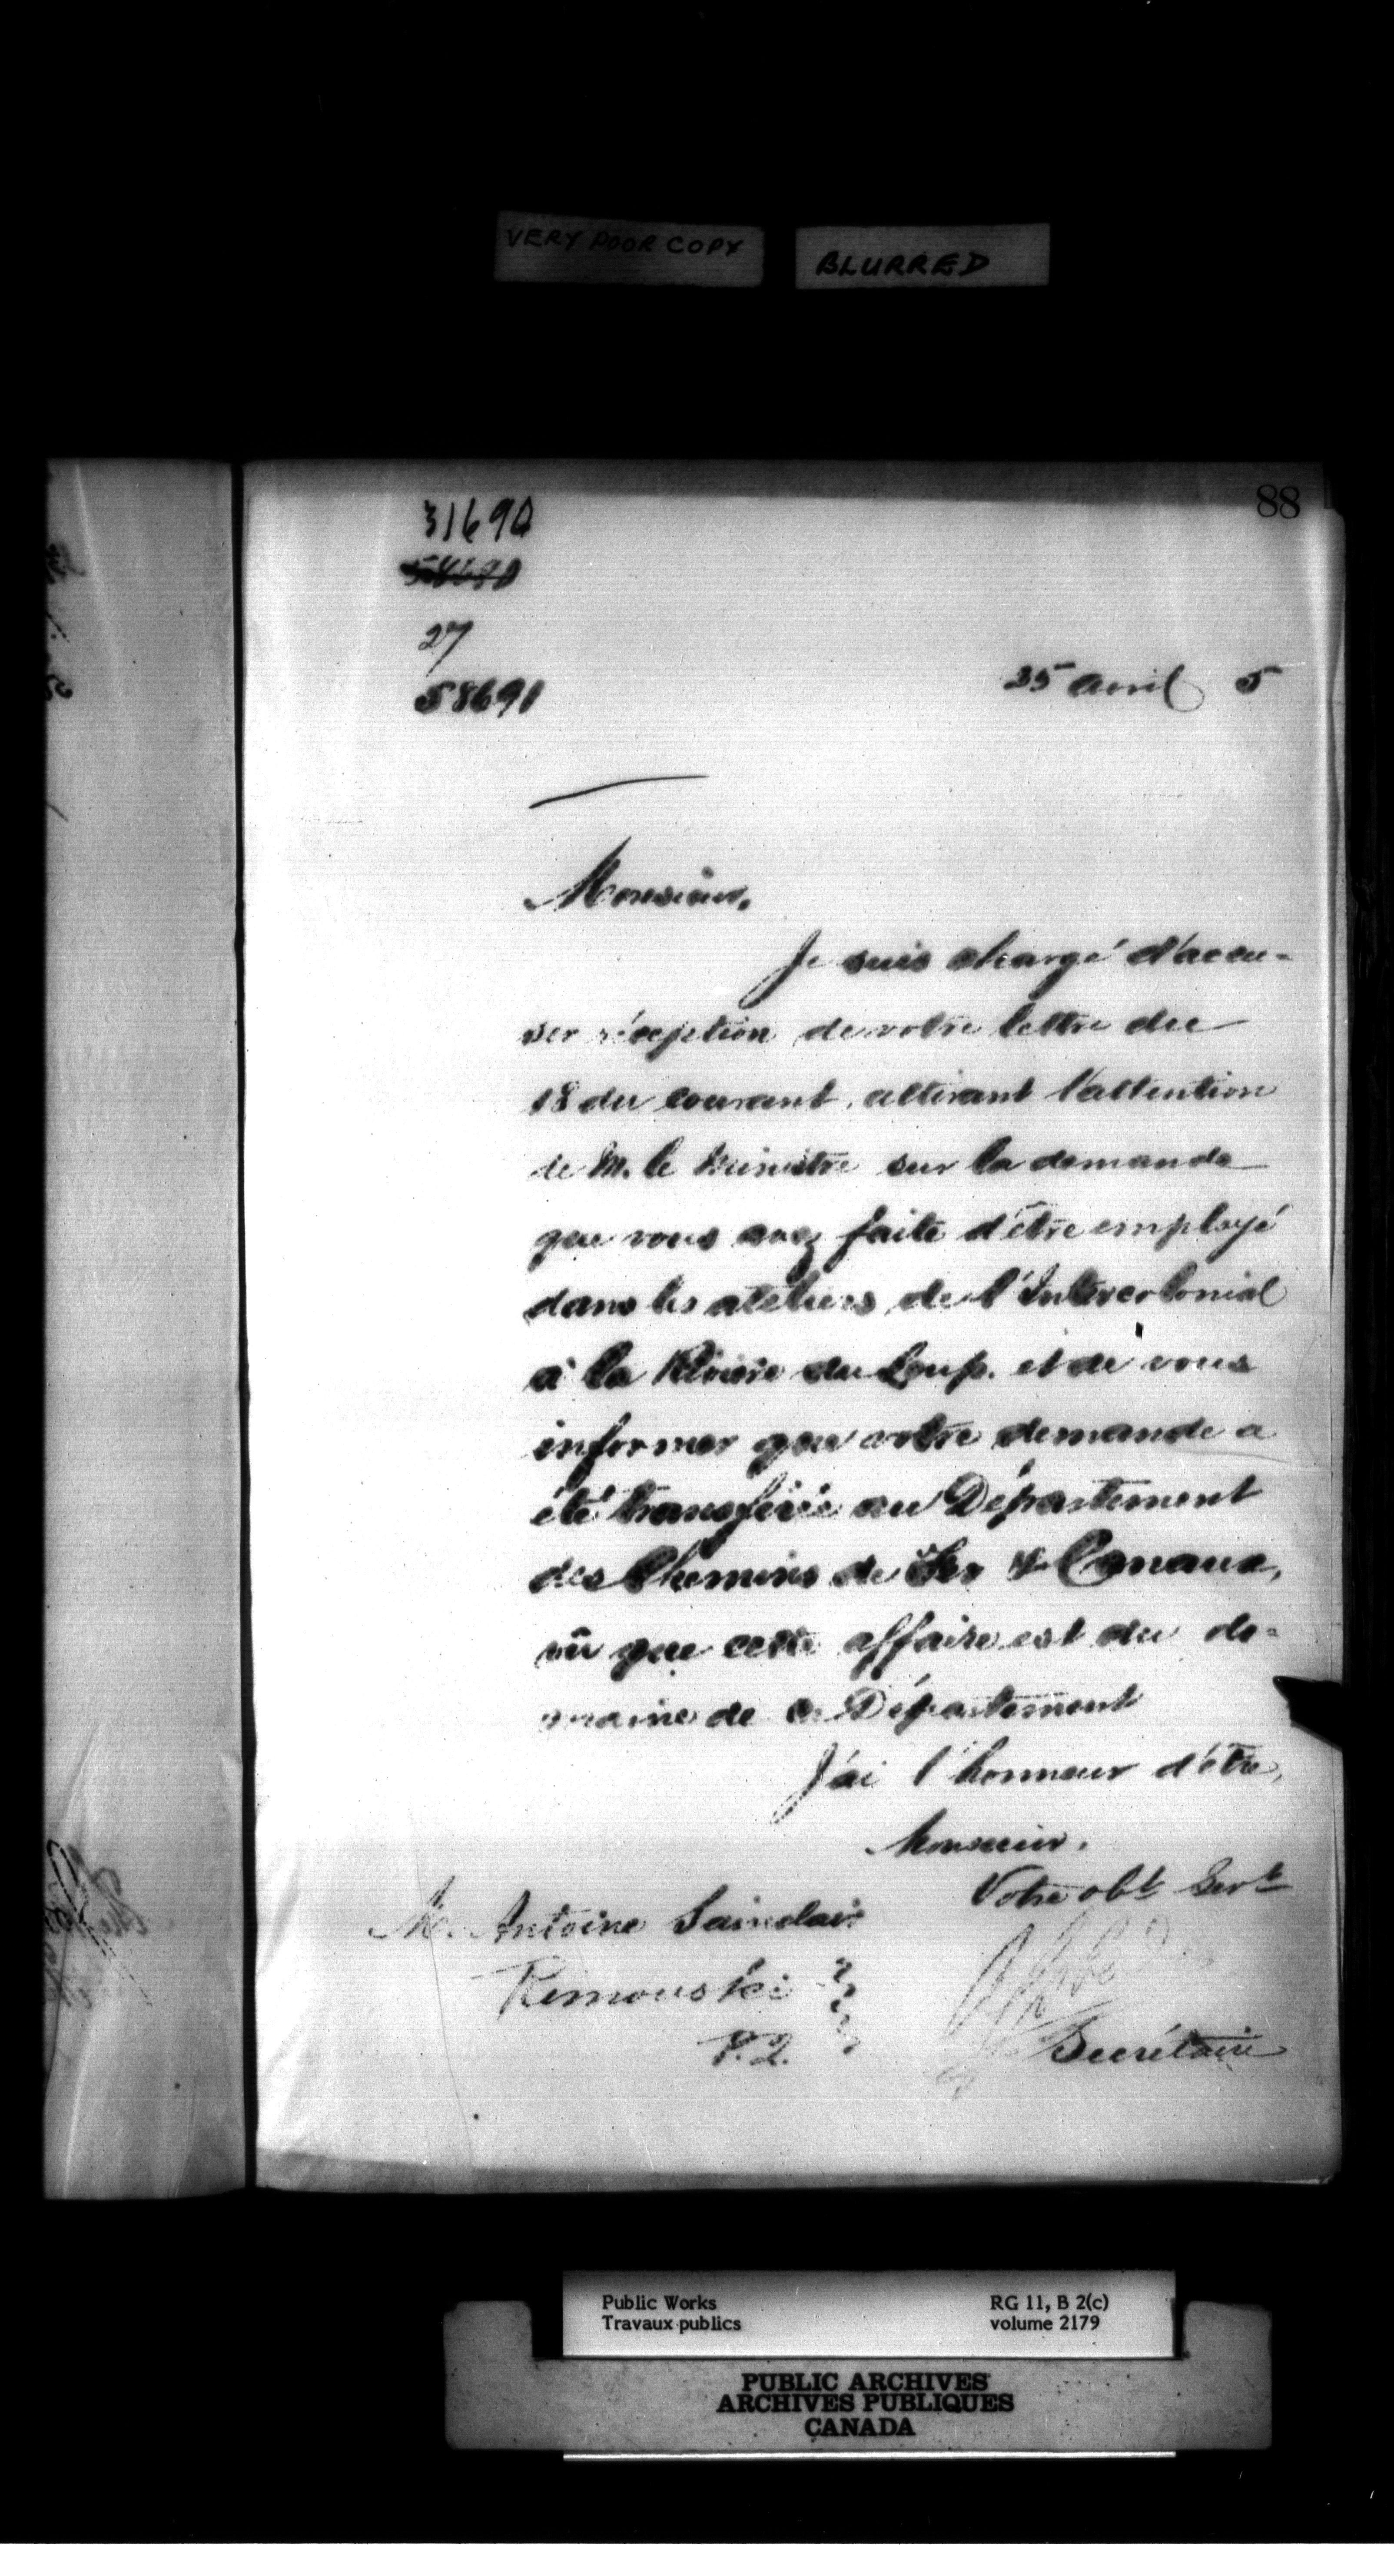 VERY POOR COPY
BLURRED
88
31690
58690
27
58691
25 avril 5
Monsieur,
Je suis chargé d'accu-
ser réception de votre lettre du
18 du courant, attirant l'attention
de M. le Ministre sur la demande
que vous avez faite d'être employé
dans les ateliers de l'Intercolonial
à la Rivière du Loup. et de vous
informer que votre demande a
été transférée au Département
des Chemins de Fer & Canaux,
vû que cette affaire est du do-
maine de ce Département
J'ai l'honneur d'être,
Monsieur,
Votre obt Servt
M. Antoine Sainclair
Rimouski
P.Q.
Secrétaire
Public Works
Travaux publics
RG 11, B 2(c)
volume 2179
PUBLIC ARCHIVES
ARCHIVES PUBLIQUES
CANADA